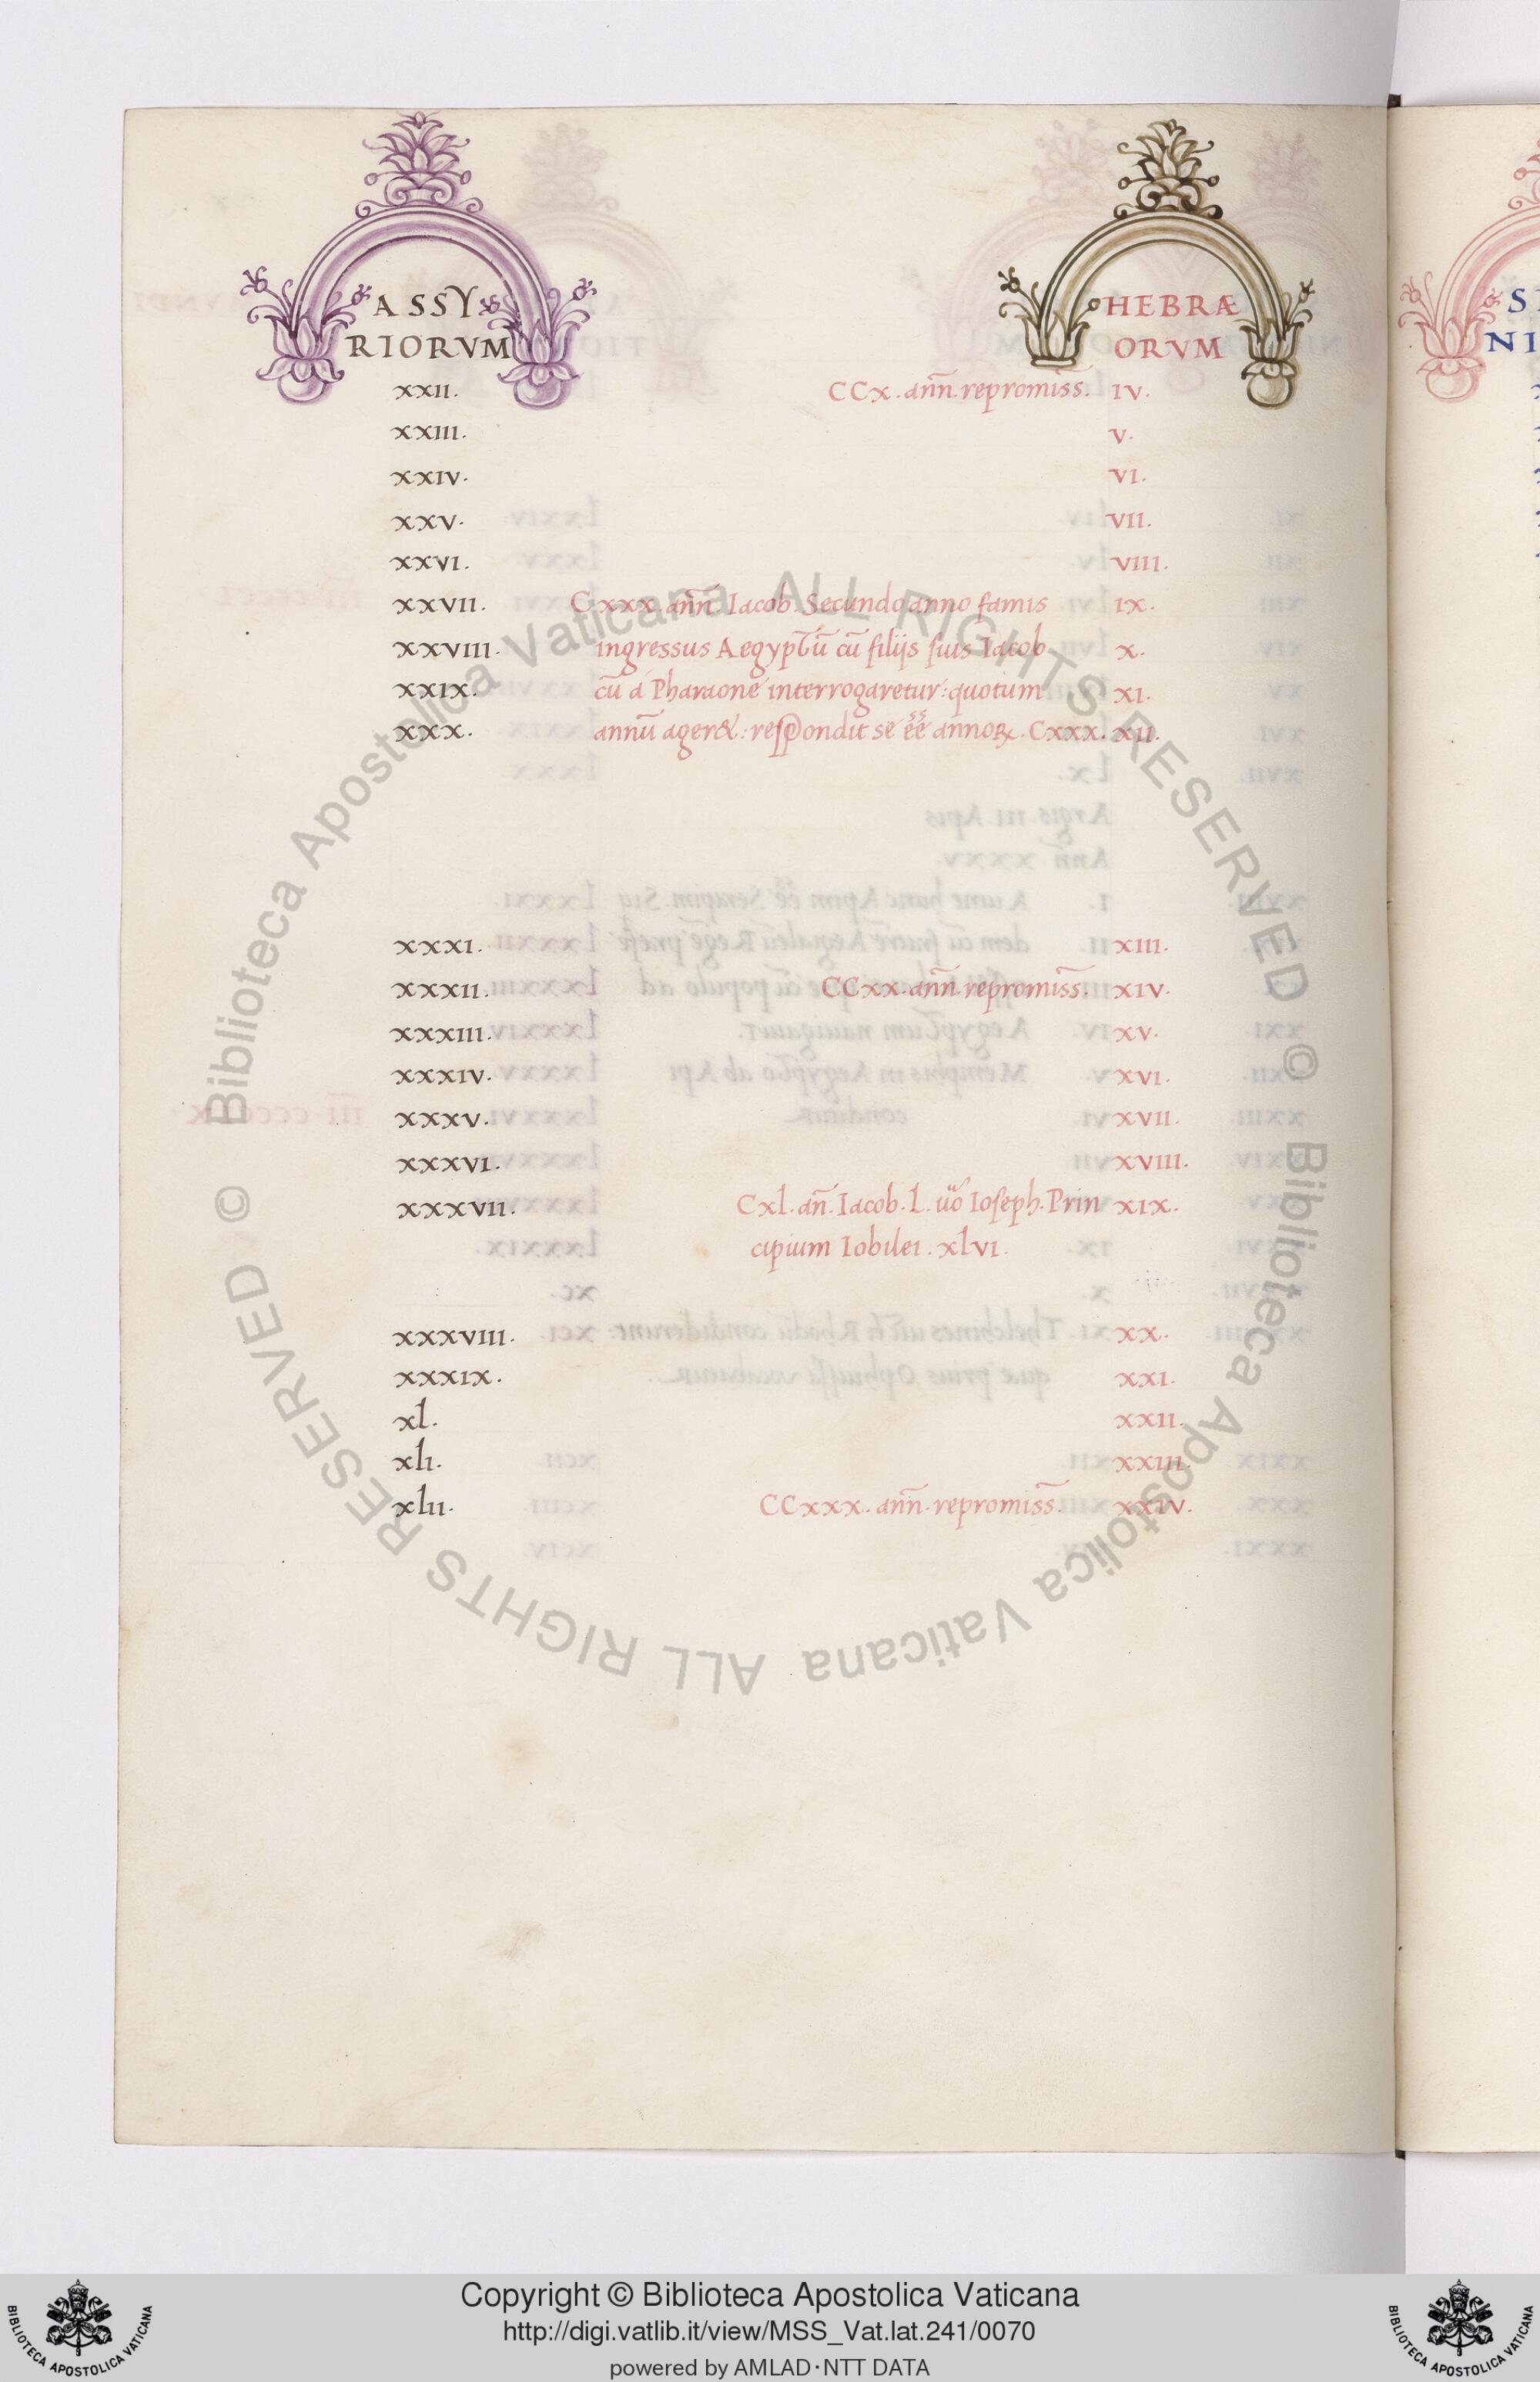 ASSY HEBRÆ
RIORVM ORVM
xxii. CCx. ann̄. repromis̄s. iv.
xxiii. v.
xxiv. vi.
xxv. vii.
xxvi. viii.
xxvii. Cxxx. ann̄. Iacob. Secundo anno famis ix.
xxviii. ingressus Aegyptū cū filijs suis Iacob x.
xxix. cū a Pharaone interrogaretur: quotum xi.
xxx. annū ager&: respondit se ēē annoꝝ. Cxxx. xii.
xxxi. xiii.
xxxii. CCxx. ann̄. repromis̄s. xiv.
xxxiii. xv.
xxxiv. xvi.
xxxv. xvii.
xxxvi. xviii.
xxxvii. Cxl. an̄. Iacob. l. uo Ioseph. Prin xix.
cipium Iobilei. xlvi.
xxxviii. xx.
xxxix. xxi.
xl. xxii.
xli. xxiii.
xlii. CCxxx. ann̄. repromis̄s. xxiv.
S
NI
© Biblioteca Apostolica Vaticana ALL RIGHTS RESERVED
© Biblioteca Apostolica Vaticana ALL RIGHTS RESERVED
Copyright © Biblioteca Apostolica Vaticana
http://digi.vatlib.it/view/MSS_Vat.lat.241/0070
powered by AMLAD·NTT DATA
BIBLIOTECA APOSTOLICA VATICANA
BIBLIOTECA APOSTOLICA VATICANA